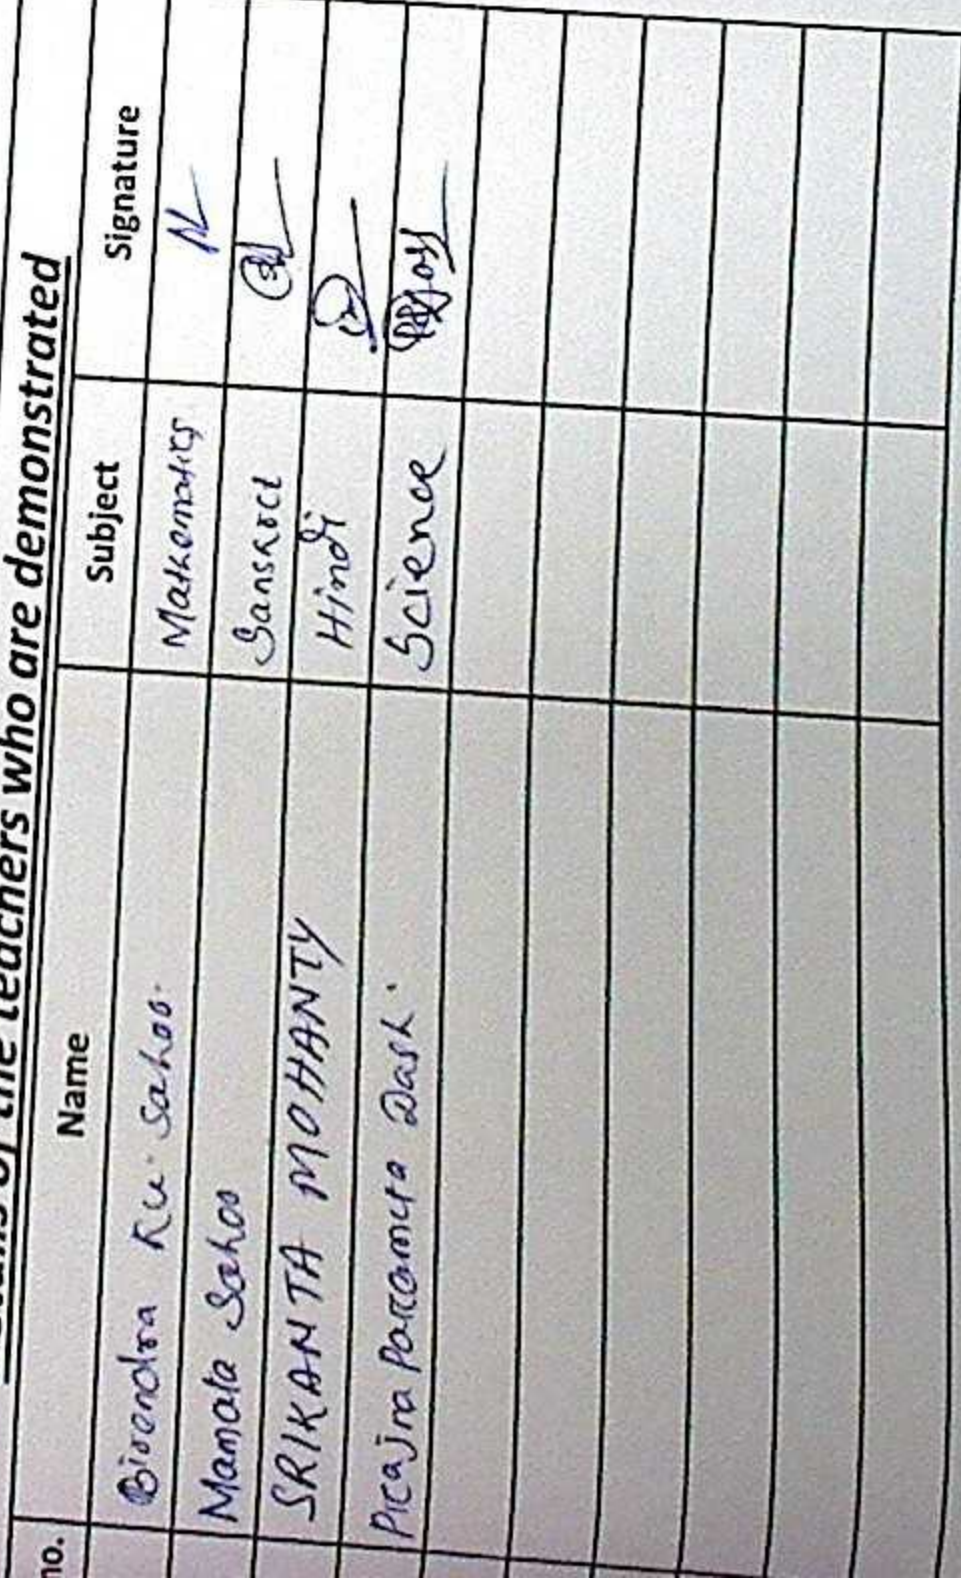 of the teachers who are demonstrated
no. Name Subject Signature
Birendra Ku. Sahoo. Mathematics
Mamata Sahoo Sanskrit
SRIKANTA MOHANTY Hindi
Prajna Paramita Dash. Science